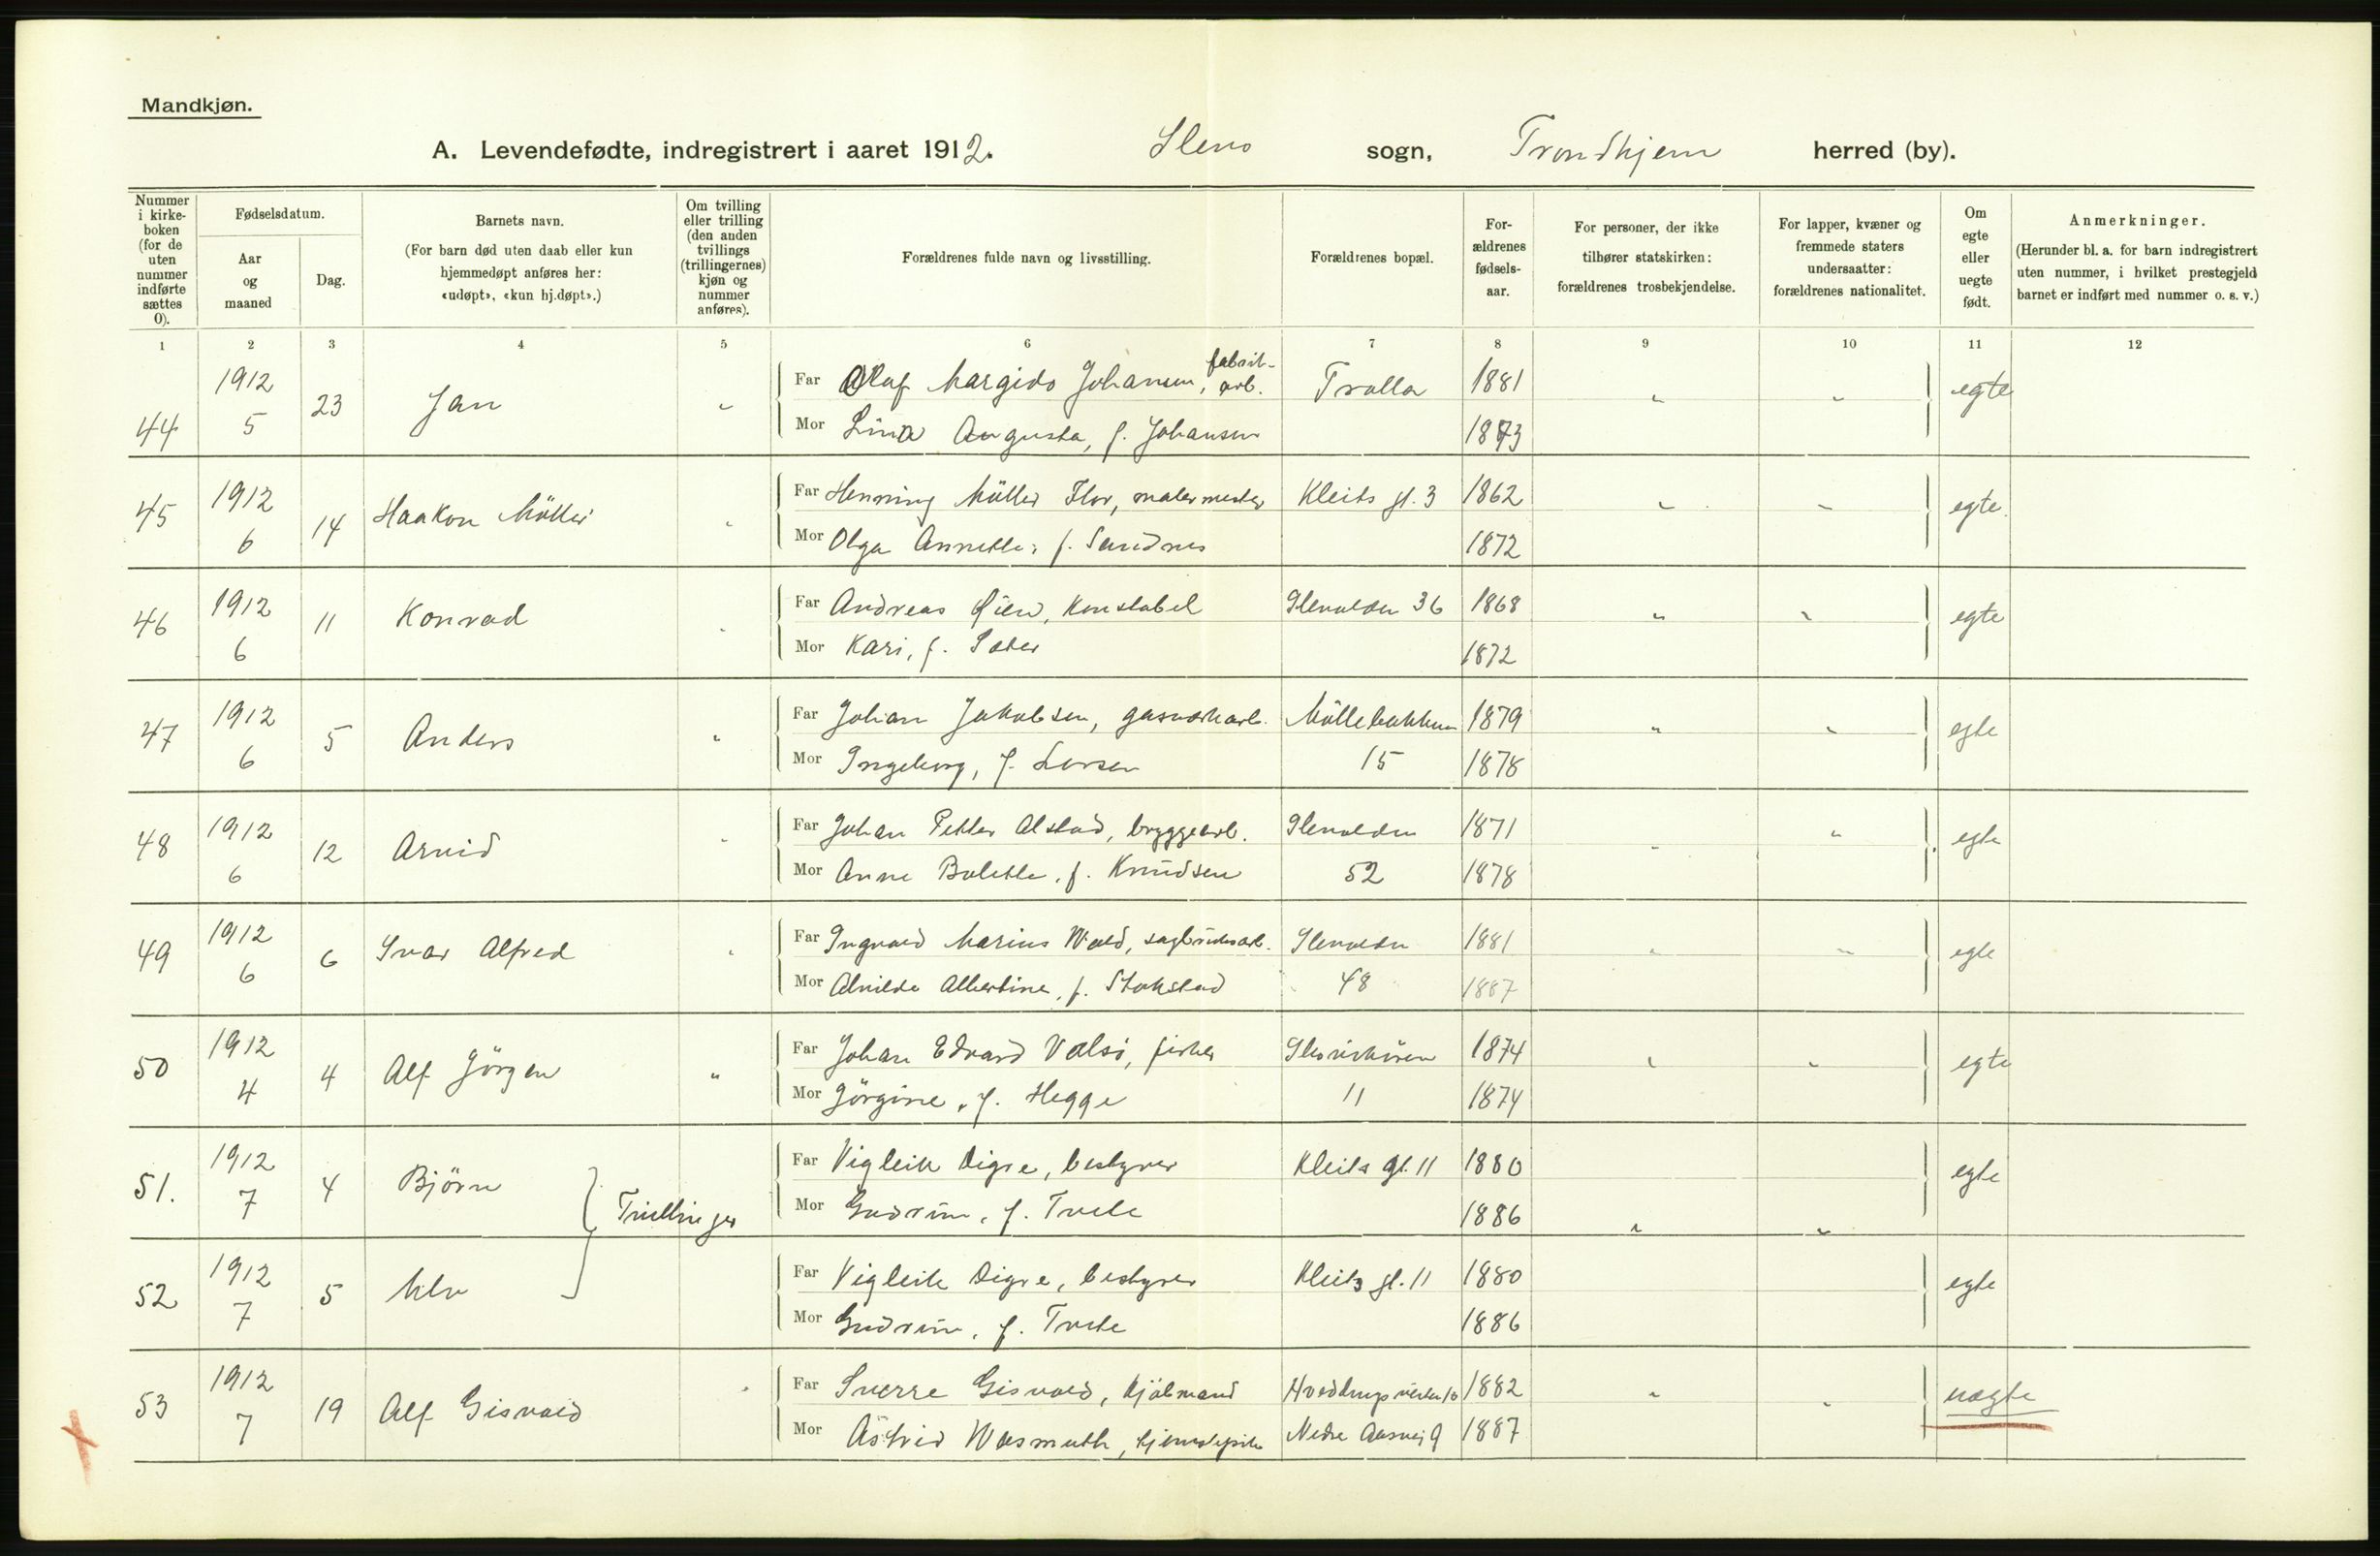 Mandkjøn.
A. Levendefødte, indregistrert i aaret 1912. Ilens sogn, Trondhjem herred (by).
Nummer i kirkeboken (for de uten nummer indførte sættes 0). Fødselsdatum. Aar og maaned Dag. Barnets navn. (For barn død uten daab eller kun hjemmedøpt anføres her: «udøpt», «kun hj.døpt».) Om tvilling eller trilling (den anden tvillings (trillingernes) kjøn og nummer anføres). Forældrenes fulde navn og livsstilling. Forældrenes bopæl. For-ældrenes fødsels-aar. For personer, der ikke tilhører statskirken: forældrenes trosbekjendelse. For lapper, kvæner og fremmede staters undersaatter: forældrenes nationalitet. Om egte eller uegte født. Anmerkninger. (Herunder bl. a. for barn indregistrert uten nummer, i hvilket prestegjeld barnet er indført med nummer o. s. v.)
1 2 3 4 5 6 7 8 9 10 11 12
44 1912 5 23 Jan " Far Olaf Margido Johansen, fabrik-arb. Trolla 1881 " " egte
Mor Lina Augusta, f. Johansen 1873
45 1912 6 14 Haakon Möller " Far Henning Möller Flor, malermester Kleits gt. 3 1862 " " egte.
Mor Olga Annette, f. Sandnes 1872
46 1912 6 11 Konrad " Far Andreas Øien, Konstabel Ilevolden 36 1868 " " egte
Mor Kari, f. Sæter 1872
47 1912 6 5 Anders " Far Johan Jakobsen, gasverkarb. Möllebakken 1879 " " egte
Mor Ingeborg, f. Larsen 15 1878
48 1912 6 12 Arvid " Far Johan Petter Alstad, bryggearb. Ilevolden 1871 " " egte
Mor Anne Bolette, f. Knudsen 52 1878
49 1912 6 6 Ivar Alfred " Far Ingvald Marius Wold, sagbruksarb. Ilevolden 1881 " " egte
Mor Alvilde Albertine, f. Stokstad 48 1887
50 1912 4 4 Alf Jörgen " Far Johan Edvard Valsö, fisker 1874 " " egte
Mor Jörgine, f. Hegge 11 1874
51. 1912 7 4 Björn Far Vigleik Digre, bestyrer Kleits gt. 11 1880 egte
Tvillinger Mor Gudrun, f. Tvete 1886 " "
52 1912 7 5 Far Vigleik Digre, bestyrer Kleits gt. 11 1880 egte
Mor Gudrun, f. Tvete 1886
53 1912 7 19 Alf Gisvold " Far Sverre Gisvold, kjölmand 1882 " " uegte
Mor Astrid Wasmuth, tjenestepike Nedre Aasvei 9 1887